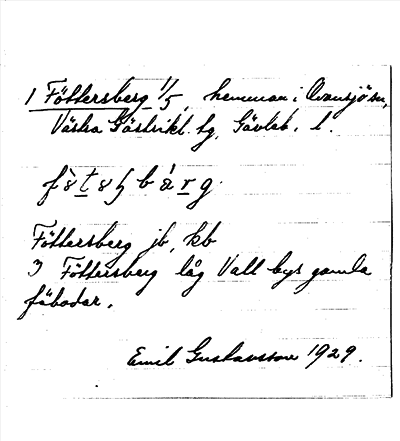 1 Föttersberg 1/5, hemman i Ovansjö sn,
Västra Gästrikl. tg, Gävleb. l.
fø̀tøʂbárg
Föttersberg jb, kb
3 Föttersberg låg Vall bys gamla
fäbodar.
Emil Gustavsson 1929.